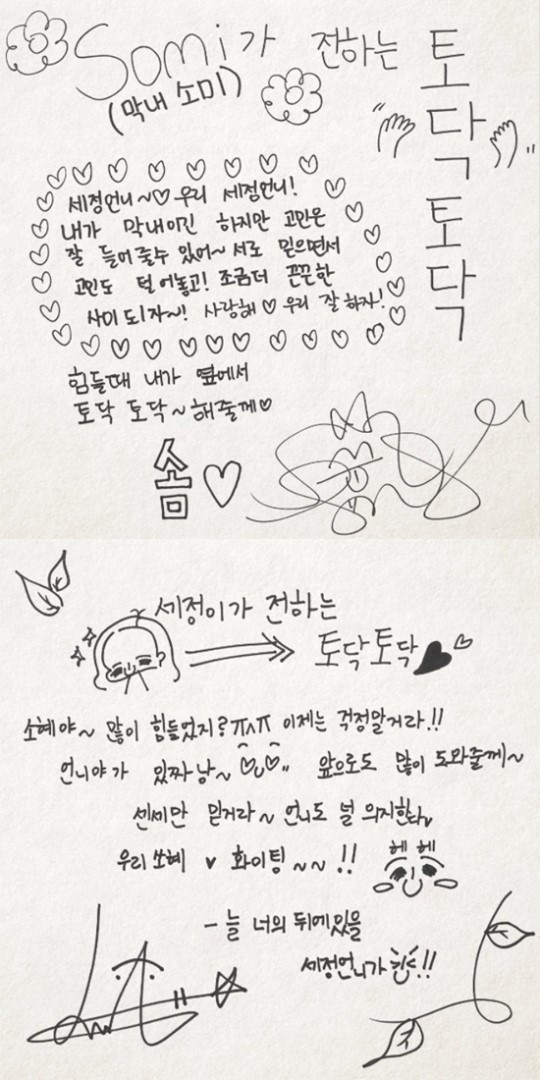 Somi가 전하는 토닥 토닥
(막내 소미)
세정언니~♡ 우리 세정언니!
내가 막내이긴 하지만 고민은
잘 들어줄수 있어~ 서로 믿으면서
고민도 털어놓고! 조금더 끈끈한
사이 되자~! 사랑해♡ 우리 잘 하자!
힘들때 내가 옆에서
토닥 토닥~해줄께♡
솜♡
세정이가 전하는
토닥토닥
소혜야~ 많이 힘들었지? ㅠㅅㅠ 이제는 걱정말거라!!
언니야가 있짜낭~ 앞으로도 많이 도와줄께~
센세만 믿거라~ 언니도 널 의지한다
우리 쏘혜 ♥ 화이팅~~!!
헤헤
- 늘 너의 뒤에 있을
세정언니가!!